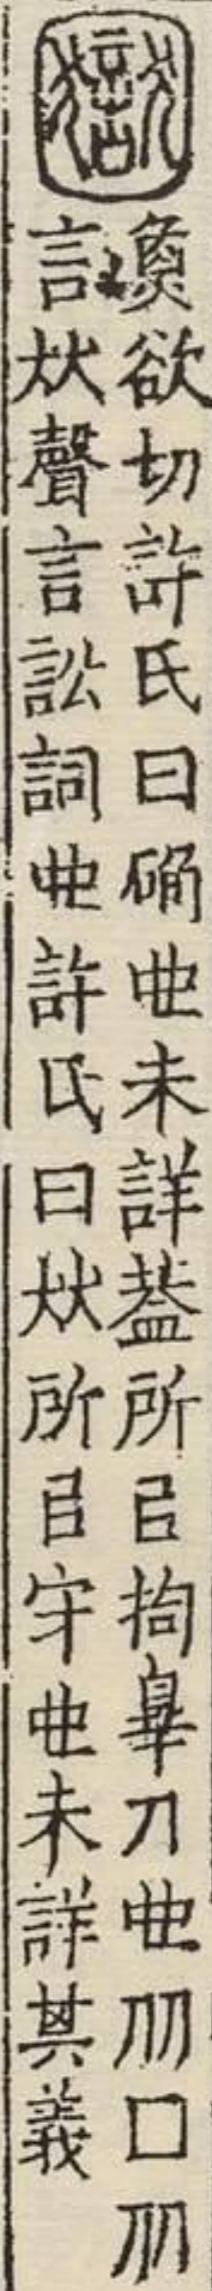 獄
魚欲切許氏曰确也未詳葢所㠯拘辠人也从㹜从
言㹜聲言訟詞也許氏曰㹜所㠯守也未詳其義